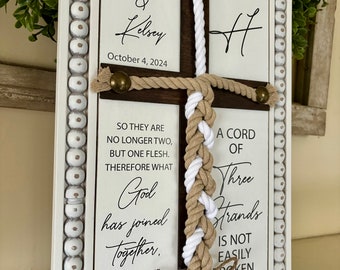 &
Kelsey
October 4, 2024
H
SO THEY ARE
NO LONGER TWO,
BUT ONE FLESH.
THEREFORE WHAT
God
has joined
together,
A CORD
OF
Three
Strands
IS NOT
EASILY
BROKEN